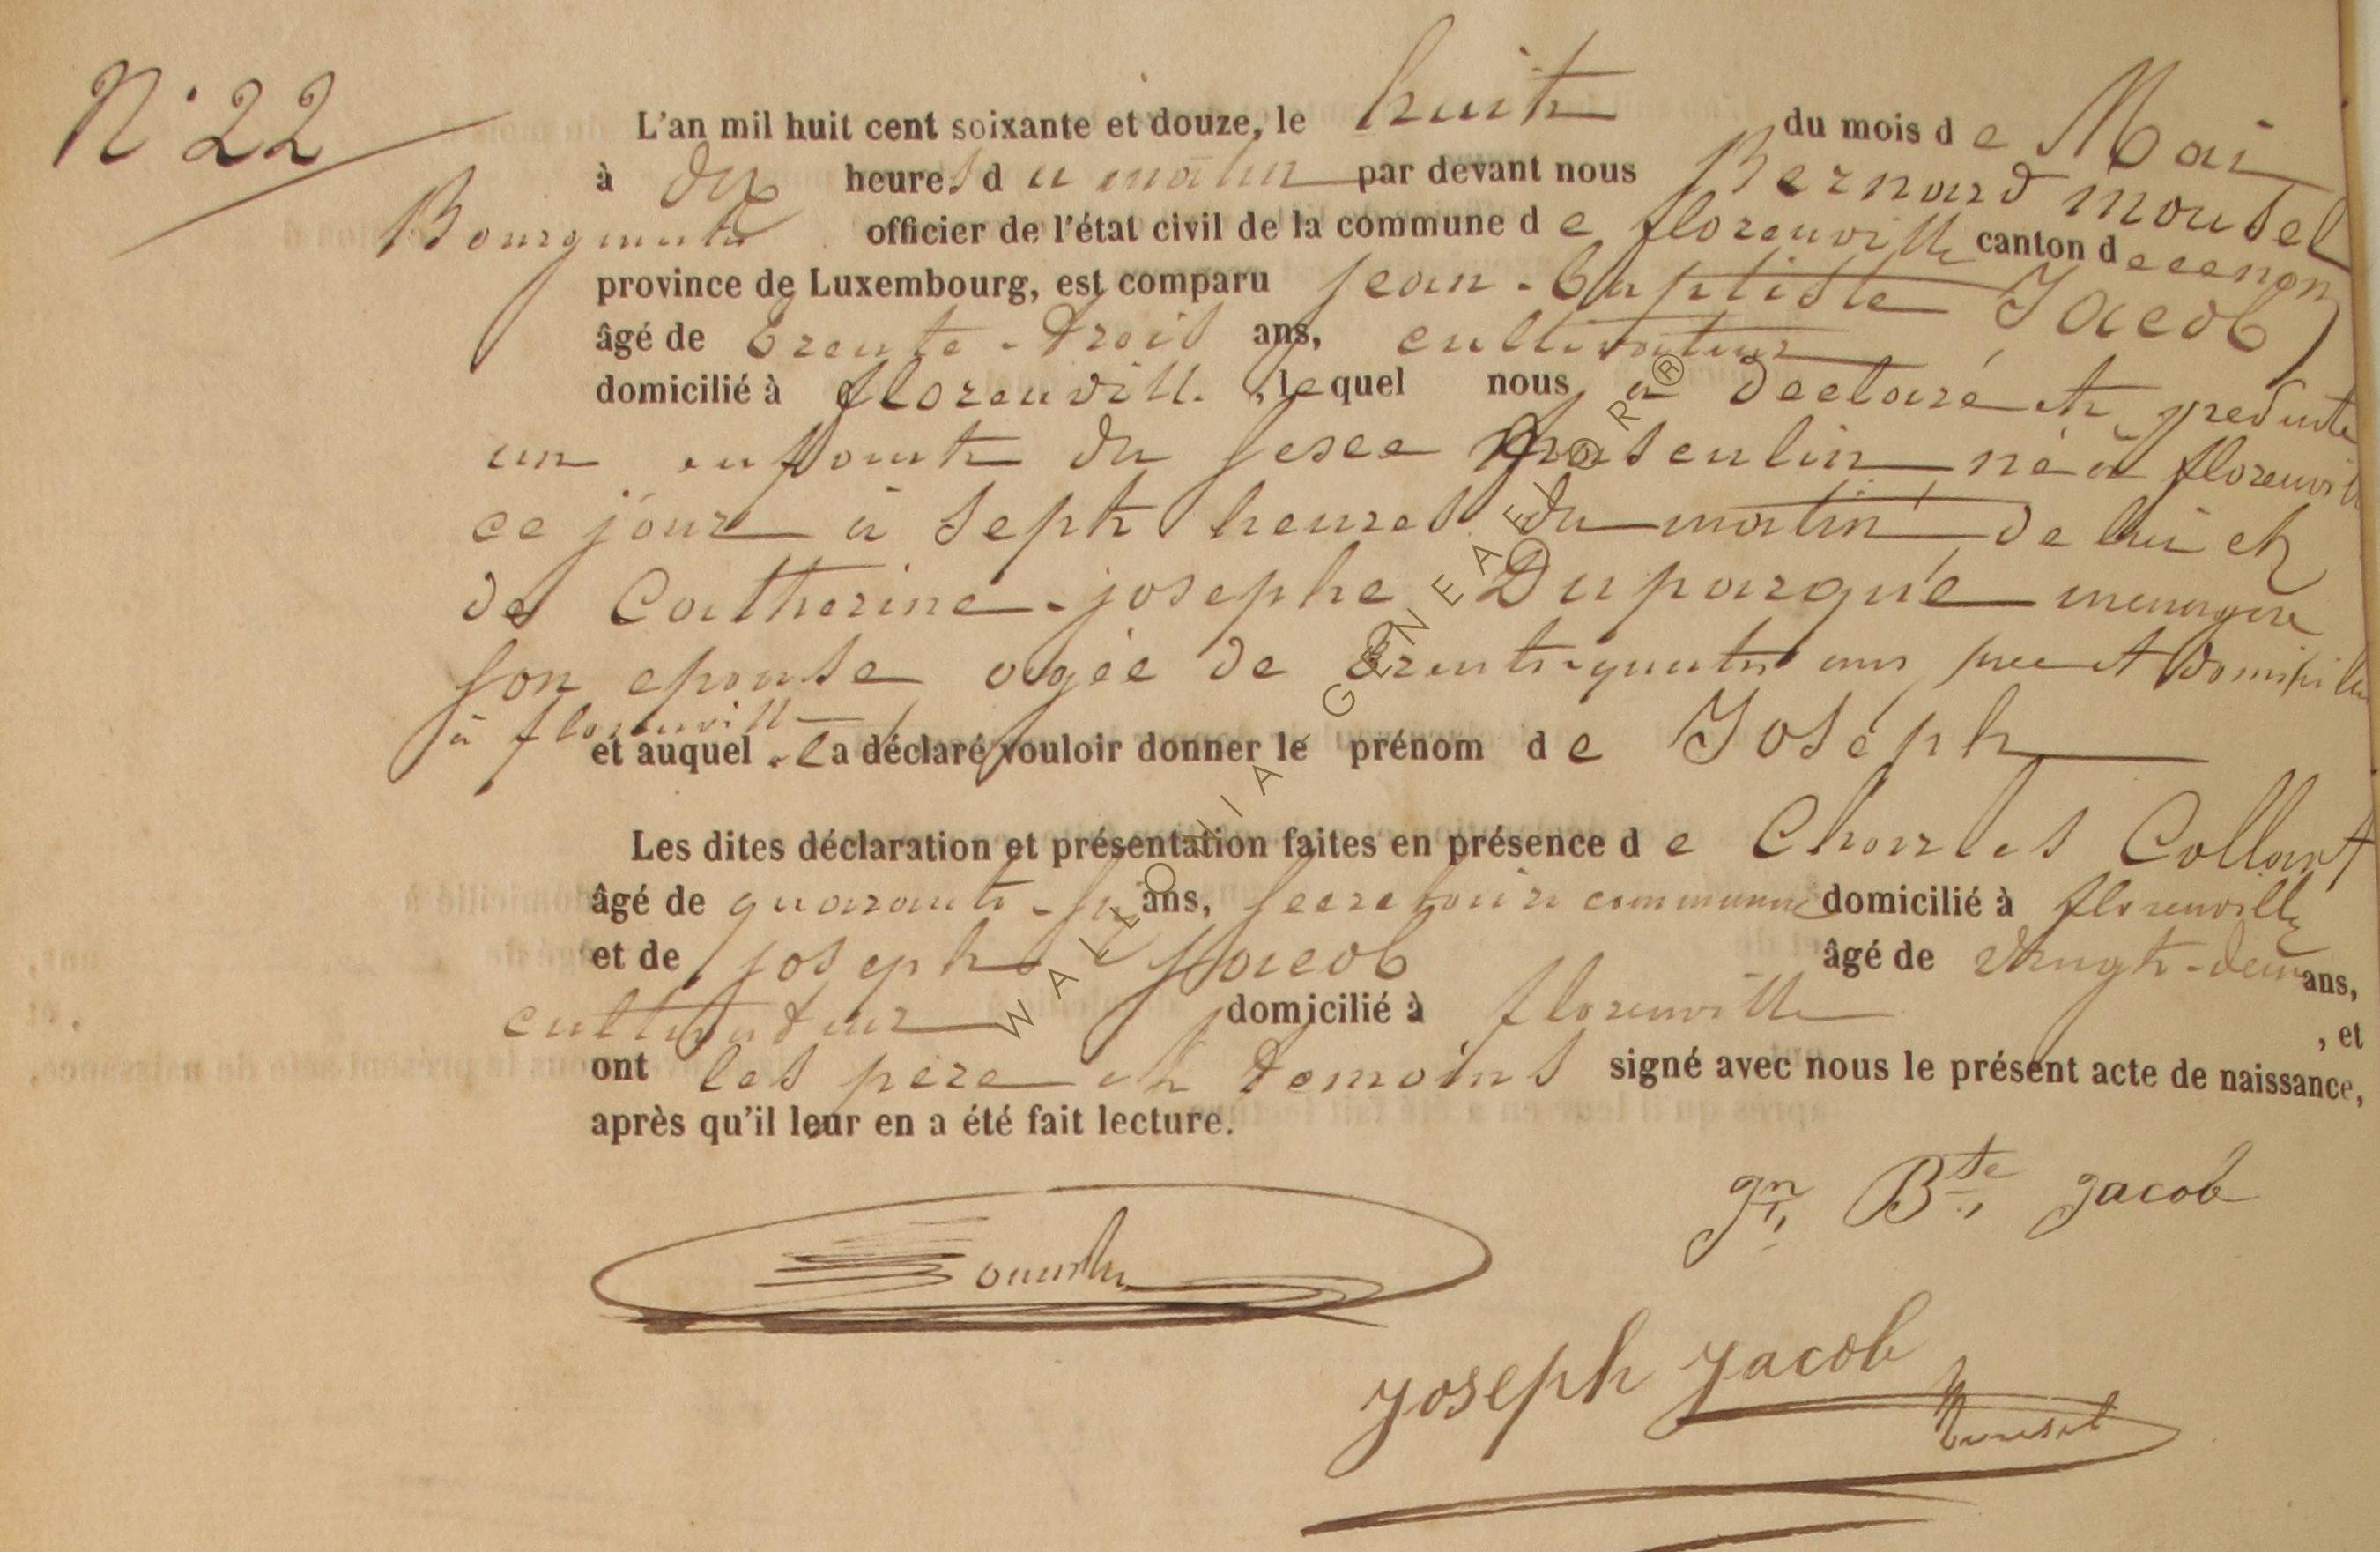 N° 22
L'an mil huit cent soixante et douze, le huit du mois de Mai
à dix heures du matin par devant nous Bernard Mousel
Bourgmestre officier de l'état civil de la commune de florenville canton
province de Luxembourg, est comparu Jean-Baptiste Jacob
âgé de trente-trois ans, cultivateur
domicilié à florenville, lequel nous a declaré et
un enfant du sexe masculin né à florenville
ce jour à sept heures du matin de lui et
de Catherine-josephe Duparque menagere
son epouse agée de trente-quatre ans domiciliée
à florenville
et auquel il a déclaré vouloir donner le prénom de Joseph
Les dites déclaration et présentation faites en présence de Charles Collart
âgé de quarante- ans, secretaire communal domicilié à florenville
et de joseph Jacob âgé de vingt-deux ans,
cultivateur domicilié à florenville, et
ont les père et temoins signé avec nous le présent acte de naissance,
après qu'il leur en a été fait lecture.
Jn Bte Jacob
Joseph Jacob
Mousel
WALLONIA GENEALOR®